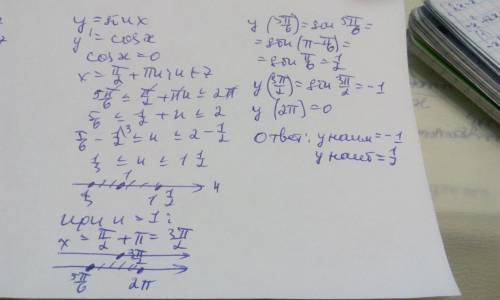 y = sin x
y' = cos x
cos x = 0
x = π/2 + πn; n ∈ Z
5π/6 ≤ π/2 + πn ≤ 2π
5/6 ≤ 1/2 + n ≤ 2
5/6 - 1/2 ≤ n ≤ 2 - 1/2
1/3 ≤ n ≤ 1 1/2
1/3 1 1 1/2 n
при n = 1:
x = π/2 + π = 3π/2
3π/2
5π/6 2π
y (5π/6) = sin 5π/6 =
= sin (π - π/6) =
= sin π/6 = 1/2
y (3π/2) = sin 3π/2 = -1
y (2π) = 0
Ответ: y наим = -1
y наиб = 1/2